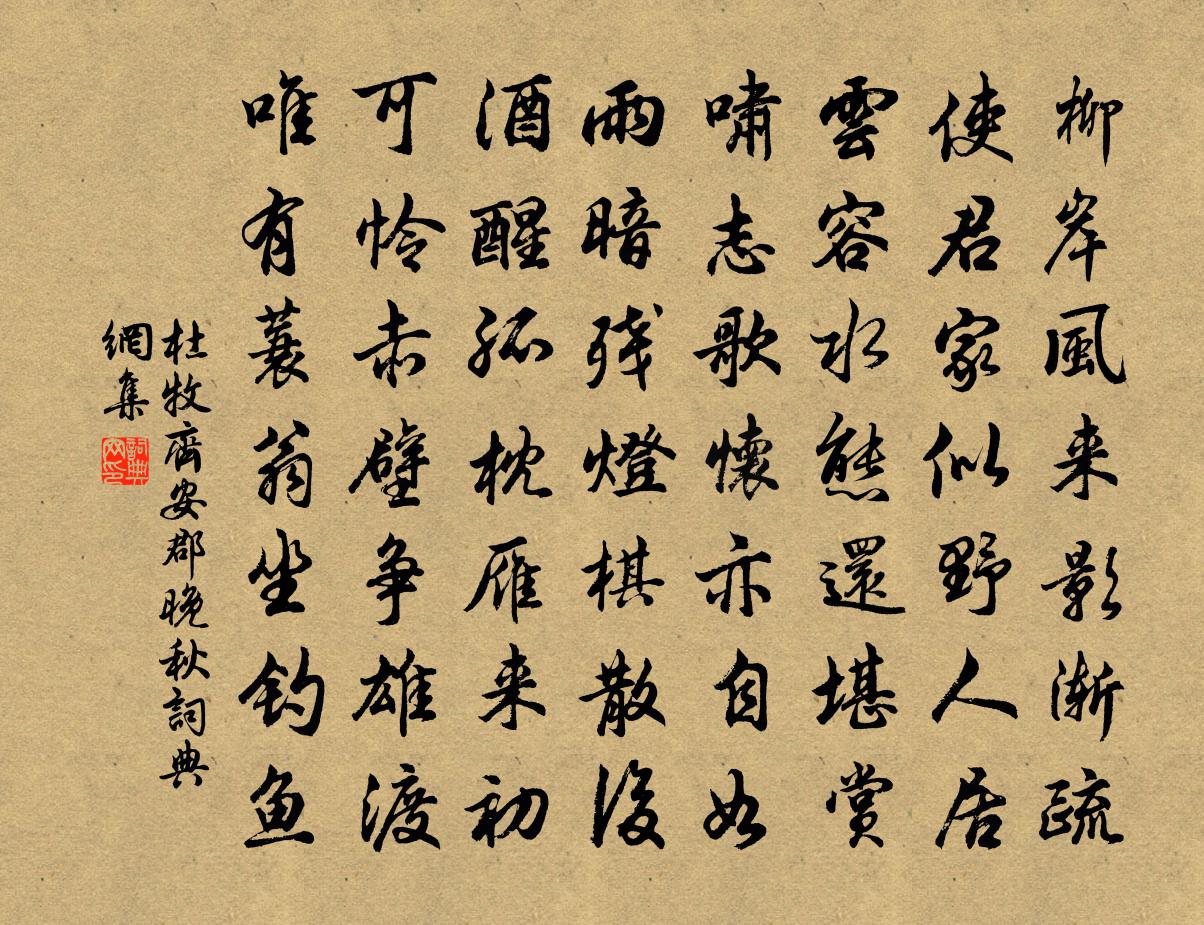 柳岸風来影漸疏
使君家似野人居
雲容水態還堪賞
嘯志歌懷亦自如
雨暗残燈棋散後
酒醒孤枕雁来初
可怜赤壁争雄渡
唯有蓑翁坐钓鱼
杜牧齊安郡晚秋詞典
網集
詞典
网印